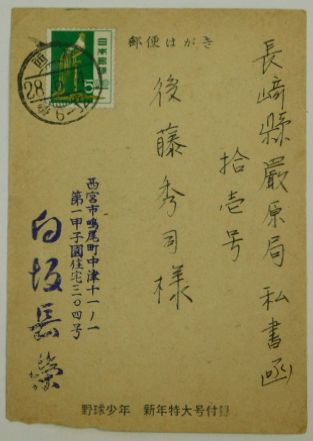 郵便はがき
日本郵便
5
西
28
長崎縣嚴原局私書函
拾壱号
後藤秀司様
西宮市鳴尾町中津十一ノ一
第一甲子園住宅三〇四号
白坂長榮
野球少年 新年特大号付録